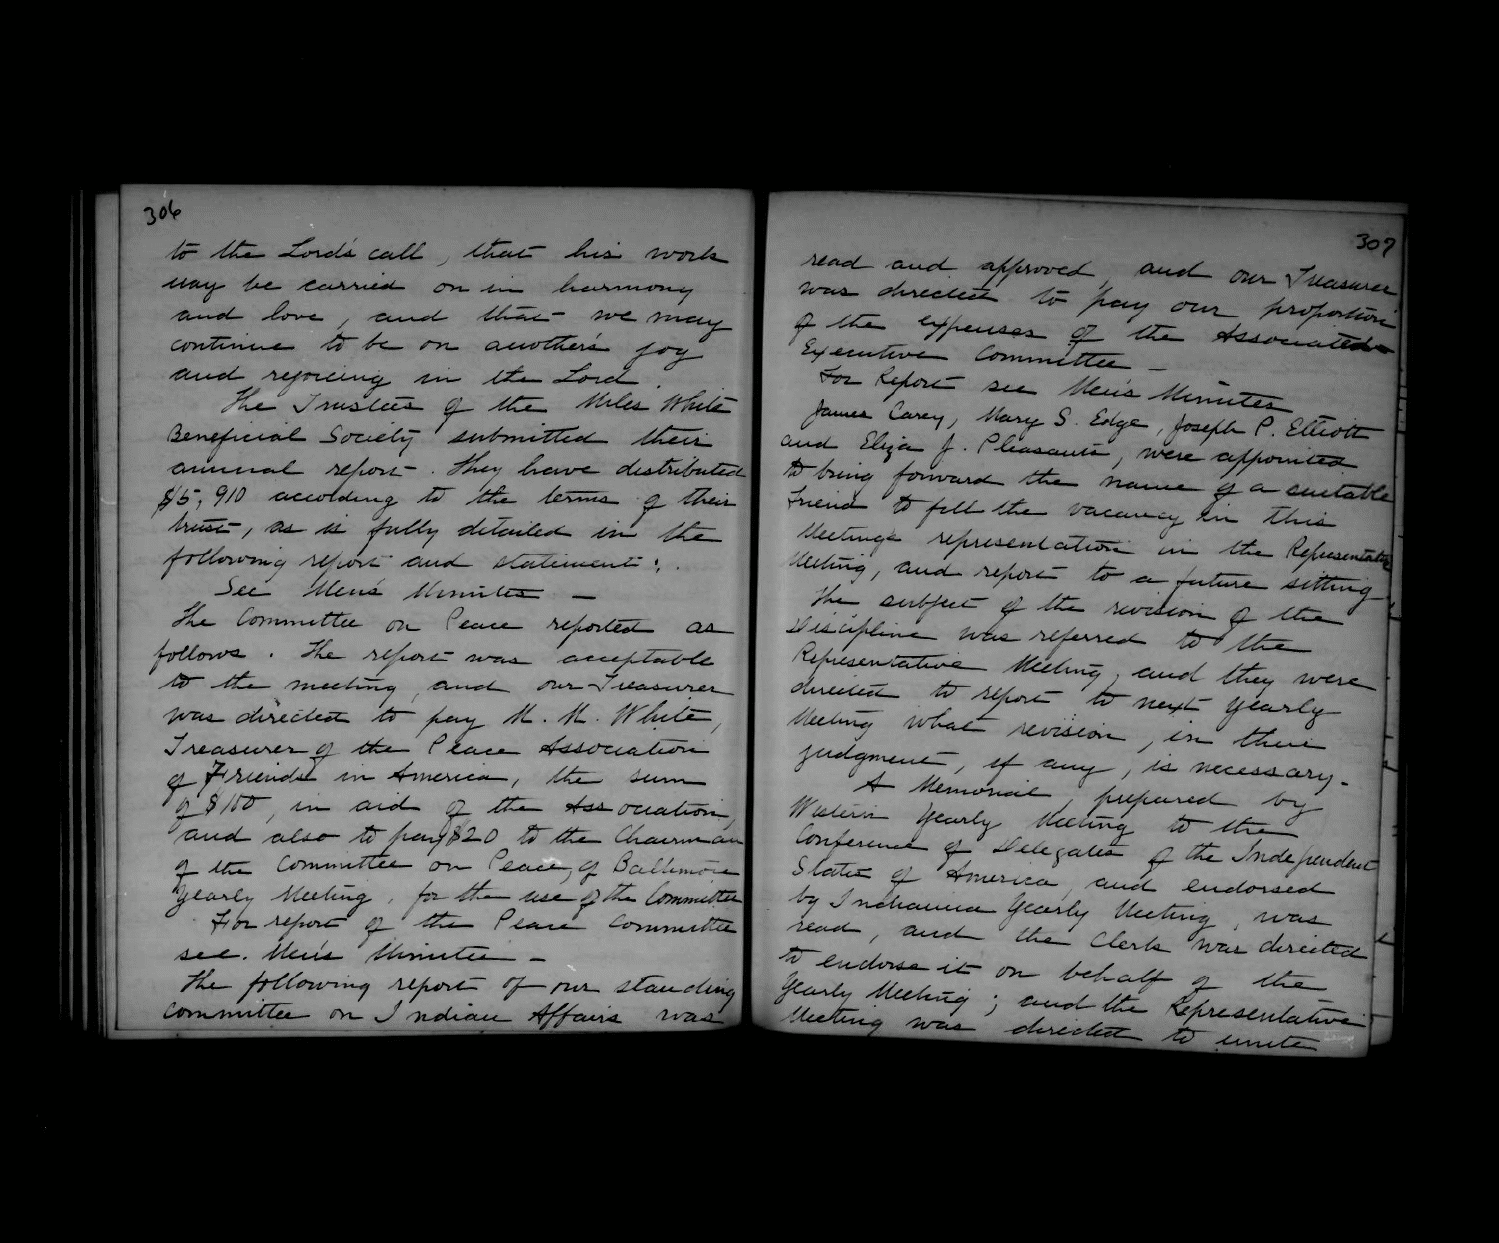 306
to the Lord's call, that his work
may be carried on in harmony
and love, and that we may
continue to be on another's joy
and rejoicing in the Lord.
The Trustees of the Miles White
Beneficial Society submitted their
annual report. They have distributed
$5,910 according to the terms of their
trust, as is fully detailed in the
following report and statement:
See Men's Minutes —
The Committee on Peace reported as
follows. The report was acceptable
to the meeting, and our Treasurer
was directed to pay M. M. White,
Treasurer of the Peace Association
of Friends in America, the sum
of $100, in aid of the Association,
and also to pay $20 to the Chairman
of the Committee on Peace, of Baltimore
Yearly Meeting, for the use of the Committee
For report of the Peace Committee
see. Men's Minutes —
The following report of our standing
Committee on Indian Affairs was
307
read and approved, and our Treasurer
was directed to pay our proportion
of the expenses of the Associated
Executive Committee —
For Report see Men's Minutes
James Carey, Mary S. Edge, Joseph P. Elliott
and Eliza J. Pleasants, were appointed
to bring forward the name of a suitable
Friend to fill the vacancy in this
Meetings representation in the Representative
Meeting, and report to a future sitting
The subject of the revision of the
Discipline was referred to the
Representative Meeting, and they were
directed to report to next Yearly
Meeting what revision, in their
judgment, if any, is necessary.
A Memorial, prepared by
Western Yearly Meeting to the
Conference of Delegates of the Independent
States of America, and endorsed
by Indiana Yearly Meeting, was
read, and the Clerk was directed
to endorse it on behalf of the
Yearly Meeting; and the Representative
Meeting was directed to unite